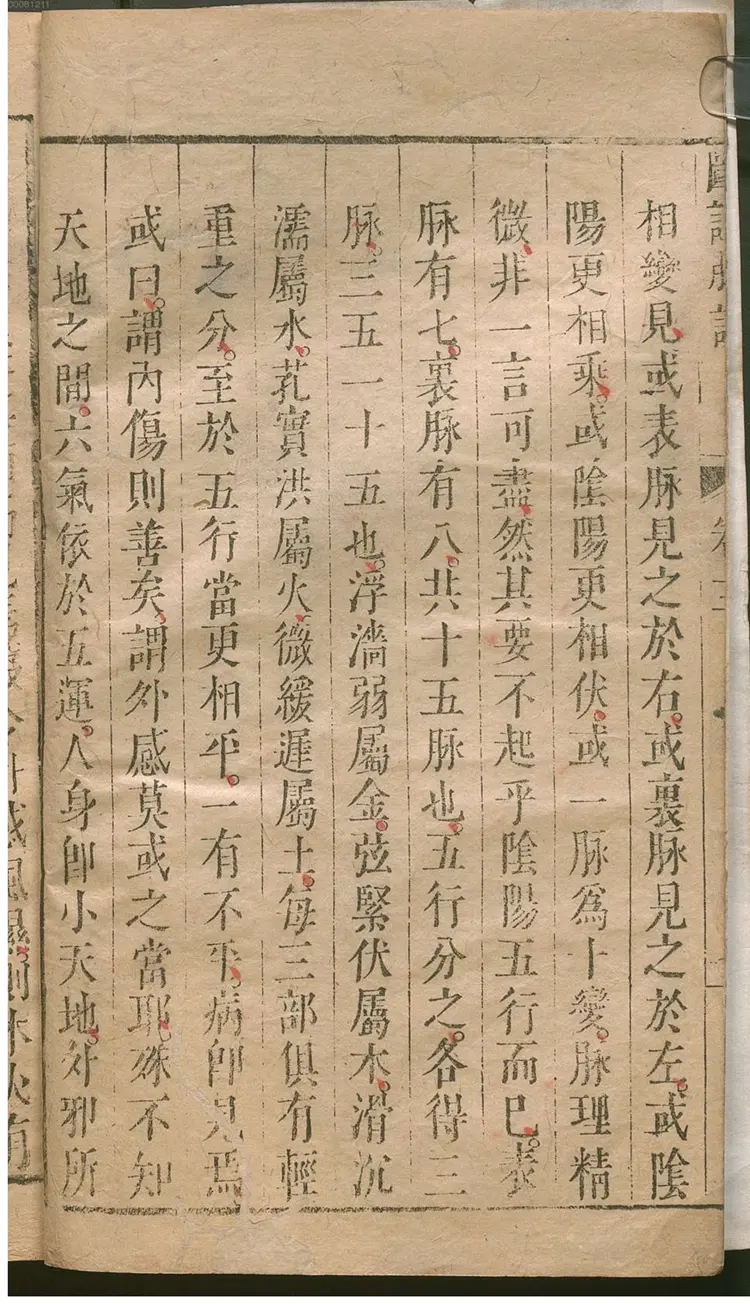 相變見或表脉見之於右或裏脉見之於左或陰
陽更相乘或陰陽更相伏或一脉爲十變脉理精
微非一言可盡然其要不起乎陰陽五行而已表
脉有七裏脉有八共十五脉也五行分之各得三
脉三五一十五也浮濇弱屬金弦緊伏屬木滑沉
濡屬水芤實洪屬火微緩遲屬土每三部俱有輕
重之分至於五行當更相平一有不平病卽見焉
或曰謂内傷則善矣謂外感莫或之當耶殊不知
天地之間六氣依於五運人身卽小天地外邪所